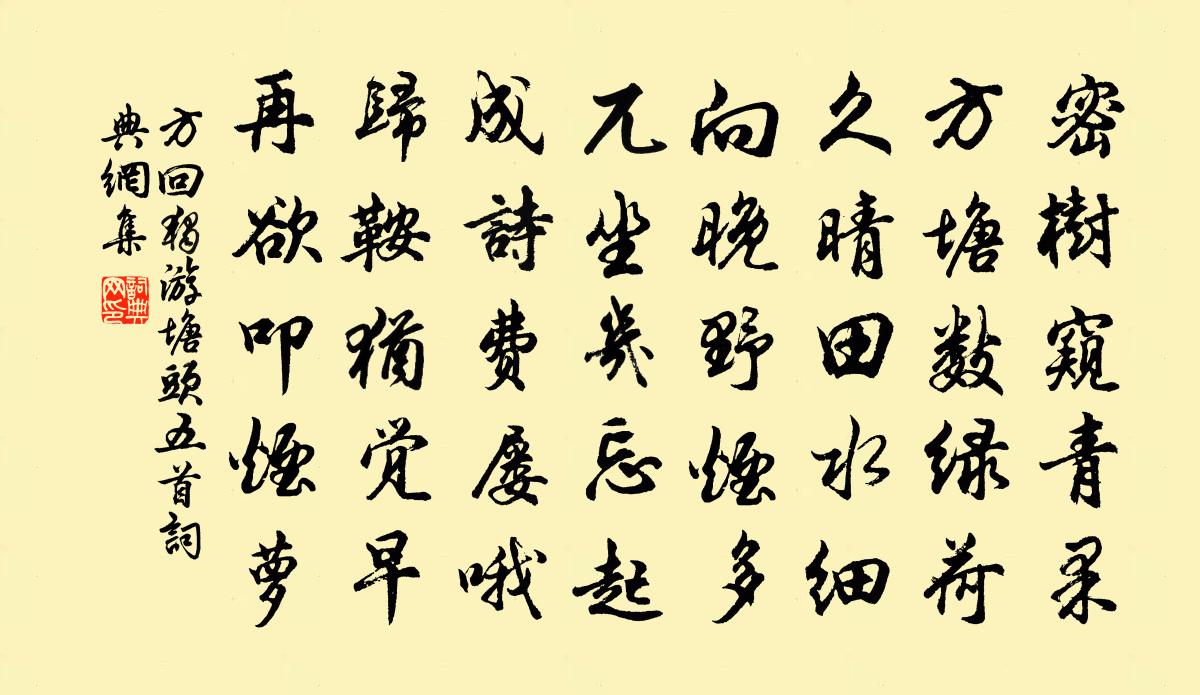 密樹窺青果
方塘数緑荷
久晴田水細
向晚野煙多
兀坐幾忘起
成詩費屢哦
歸鞍猶觉早
再欲叩煙萝
方回獨游塘頭五首詞
典網集
詞典
网印